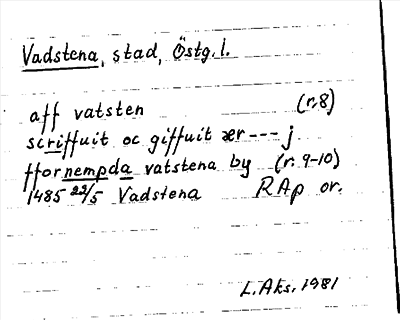 Vadstena, stad, Östg. l.
aff vatsten (r.8)
scriffuit oc giffuit ær --- j
ffornempda vatstena by (r. 9-10)
1485 22/5 Vadstena RAp or.
L. Aks. 1981